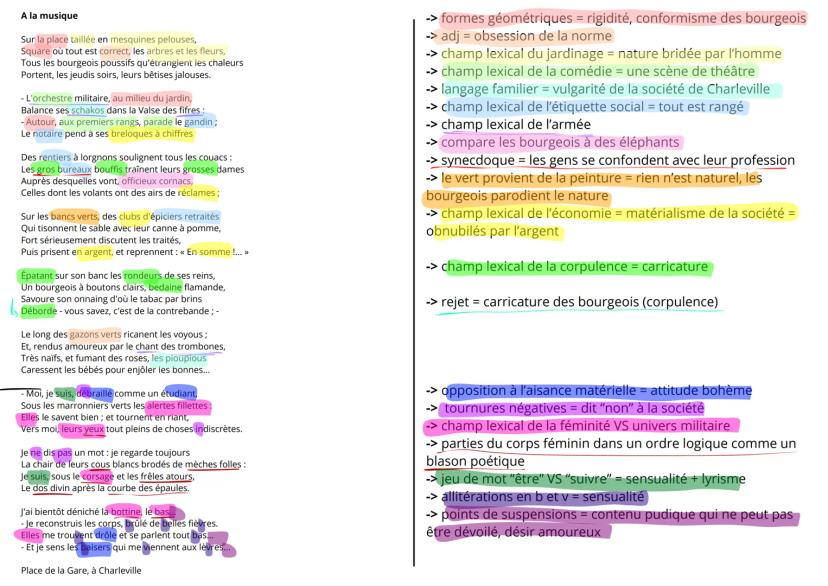 A la musique
Sur la place taillée en mesquines pelouses,
Square où tout est correct, les arbres et les fleurs,
Tous les bourgeois poussifs qu'étranglent les chaleurs
Portent, les jeudis soirs, leurs bêtises jalouses.
- L'orchestre militaire, au milieu du jardin,
Balance ses schakos dans la Valse des fifres :
- Autour, aux premiers rangs, parade le gandin ;
Le notaire pend à ses breloques à chiffres
Des rentiers à lorgnons soulignent tous les couacs :
Les gros bureaux bouffis traînent leurs grosses dames
Auprès desquelles vont, officieux cornacs,
Celles dont les volants ont des airs de réclames ;
Sur les bancs verts, des clubs d'épiciers retraités
Qui tisonnent le sable avec leur canne à pomme,
Fort sérieusement discutent les traités,
Puis prisent en argent, et reprennent : « En somme !... »
Épatant sur son banc les rondeurs de ses reins,
Un bourgeois à boutons clairs, bedaine flamande,
Savoure son onnaing d'où le tabac par brins
Déborde - vous savez, c'est de la contrebande ; -
Le long des gazons verts ricanent les voyous ;
Et, rendus amoureux par le chant des trombones,
Très naïfs, et fumant des roses, les pioupious
Caressent les bébés pour enjôler les bonnes...
- Moi, je suis, débraillé comme un étudiant,
Sous les marronniers verts les alertes fillettes :
Elles le savent bien ; et tournent en riant,
Vers moi, leurs yeux tout pleins de choses indiscrètes.
Je ne dis pas un mot : je regarde toujours
La chair de leurs cous blancs brodés de mèches folles :
Je suis, sous le corsage et les frêles atours,
Le dos divin après la courbe des épaules.
J'ai bientôt déniché la bottine, le bas...
- Je reconstruis les corps, brûlé de belles fièvres.
Elles me trouvent drôle et se parlent tout bas...
- Et je sens les baisers qui me viennent aux lèvres...
Place de la Gare, à Charleville
-> formes géométriques = rigidité, conformisme des bourgeois
-> adj = obsession de la norme
-> champ lexical du jardinage = nature bridée par l'homme
-> champ lexical de la comédie = une scène de théâtre
-> langage familier = vulgarité de la société de Charleville
-> champ lexical de l'étiquette social = tout est rangé
-> champ lexical de l'armée
-> compare les bourgeois à des éléphants
-> synecdoque = les gens se confondent avec leur profession
-> le vert provient de la peinture = rien n'est naturel, les
bourgeois parodient le nature
-> champ lexical de l'économie = matérialisme de la société =
obnubilés par l'argent
-> champ lexical de la corpulence = carricature
-> rejet = carricature des bourgeois (corpulence)
-> opposition à l'aisance matérielle = attitude bohème
-> tournures négatives = dit "non" à la société
-> champ lexical de la féminité VS univers militaire
-> parties du corps féminin dans un ordre logique comme un
blason poétique
-> jeu de mot "être" VS "suivre" = sensualité + lyrisme
-> allitérations en b et v = sensualité
-> points de suspensions = contenu pudique qui ne peut pas
être dévoilé, désir amoureux